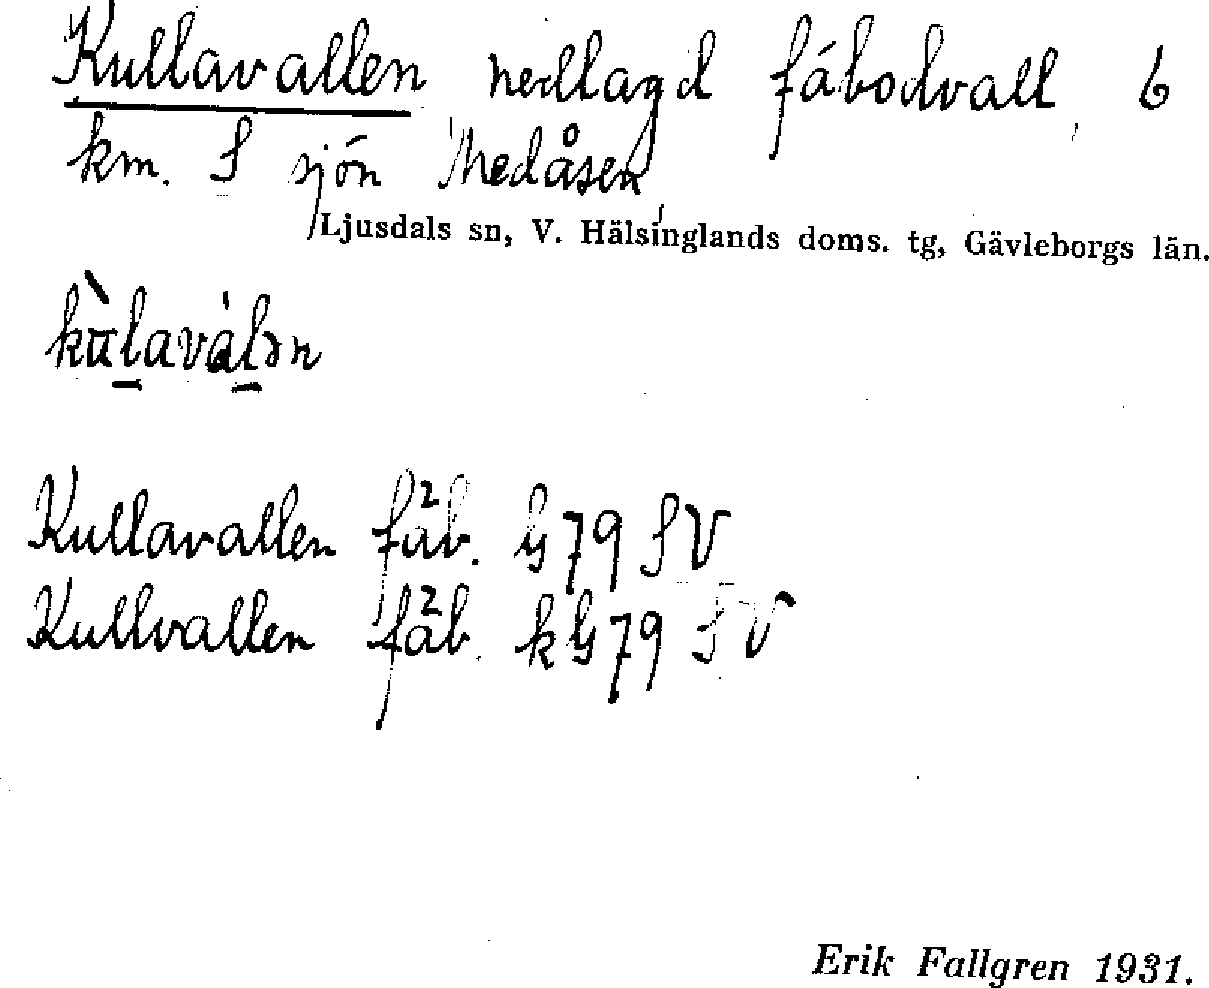 Kullavallen nedlagd fábodvall, 6
km. S sjön Medåsen,
Ljusdals sn, V. Hälsinglands doms. tg, Gävleborgs län.
Kullavallen fäb. G 79 SV
Kullvallen fäb. k G 79 SV
Erik Fallgren 1931.